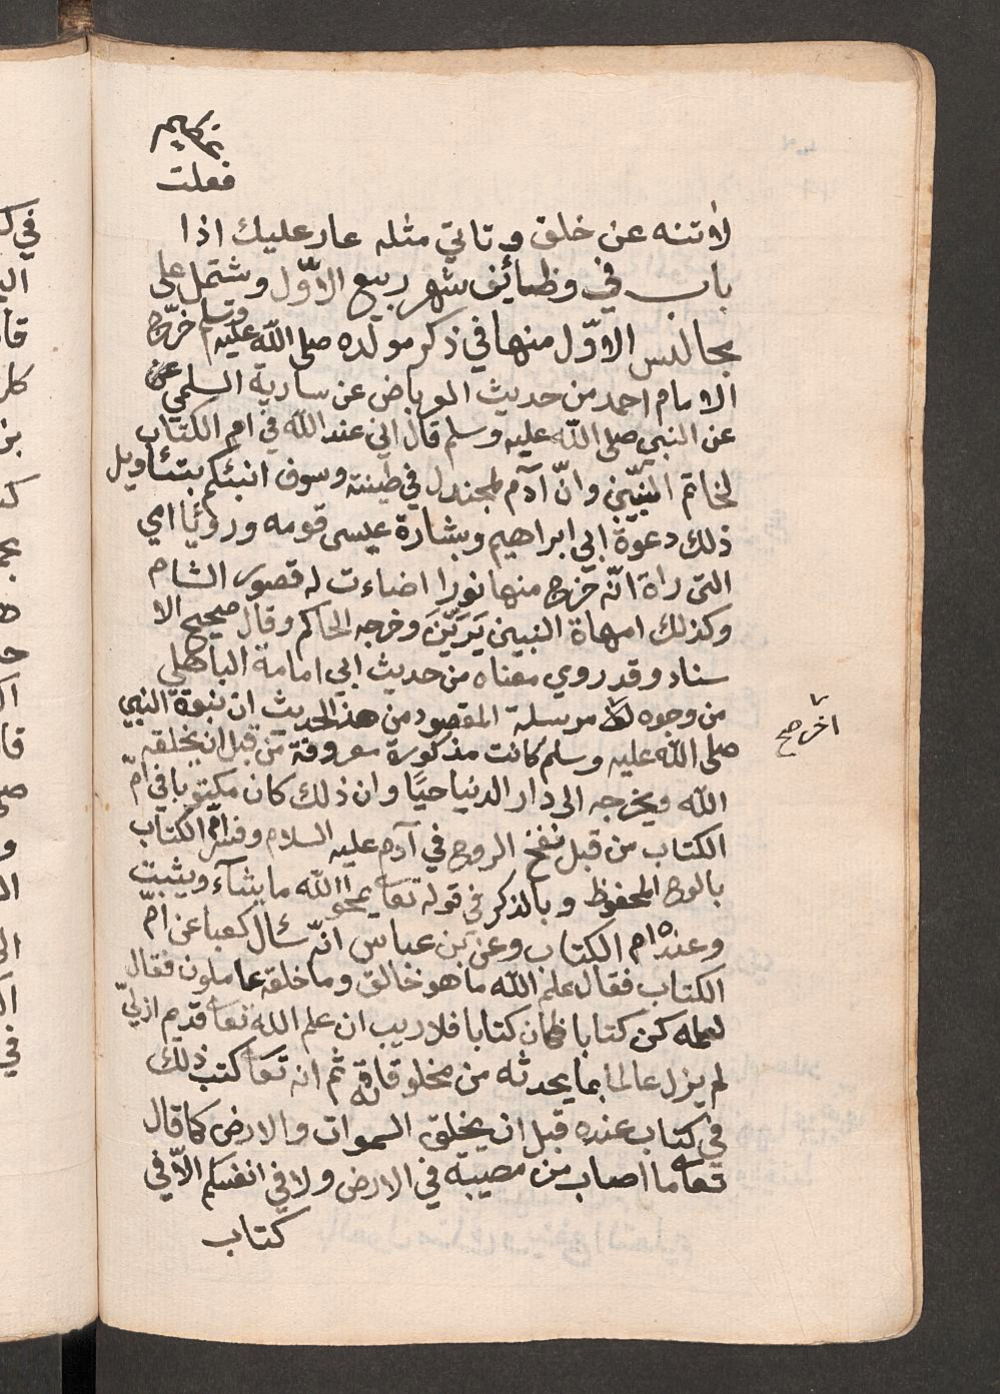 فعلت
لا تنه عن خلق و تاتي مثله عار عليك اذا
باب في وظائف شهر ربيع الاوّل وشتمل على
مجالس الاوّل منها في ذكر مولده صلى الله عليه وسلم خرّج
الامام احمد من حديث العرباض عن سارية السلمي عن
عن النبي صلى الله عليه وسلم قال اني عند الله في ام الكتاب
لخاتم النبيّين وانّ آدم لمجندل في طينته وسوف انبئكم بتئاويل
ذلك دعوة ابي ابراهيم وبشارة عيسى قومه ورؤيا امي
التى راة انّه خرج منها نورا اضاءت له قصور الشام
وكذلك امهاة النبين يَرَيْنَ وخرجه الحاكم وقال صحيح الا
سناد وقد روي معناه من حديث ابي امامة الباهلي
من وجوه مرسلة المقصود من هذ الحديث ان نبوة النبي
آخر صح
صلى الله عليه وسلم كانت مذكورة معروفة من قبل ان يخلقه
الله ويخرجه الى دار الدنيا حيًا وان ذلك كان مكتوبا في امّ
الكتاب من قبل نفخ الروح في آدم عليه السلام وفسّر ام الكتاب
بالوح المحفوظ وبالذكر في قوله تعا يمحوا الله ما يشآء ويثبت
وعنده ام الكتاب وعن بن عباس انّه سئال كعبا عن امّ
الكتاب فقال علم الله ما هو خالق وما خلقه عاملون فقال
لعلمه كن كتابا فكان كتابا فلا ريب ان علم الله تعا قديم ازليّ
لم يزل عالما بما يحدثه من مخلوقاته ثم انه تعا كتب ذلك
في كتاب عنده قبل ان يخلق السموات والارض كما قال
تعا ما اصاب من مصيبة في الارض ولا في انفسكم الّا في
كتاب